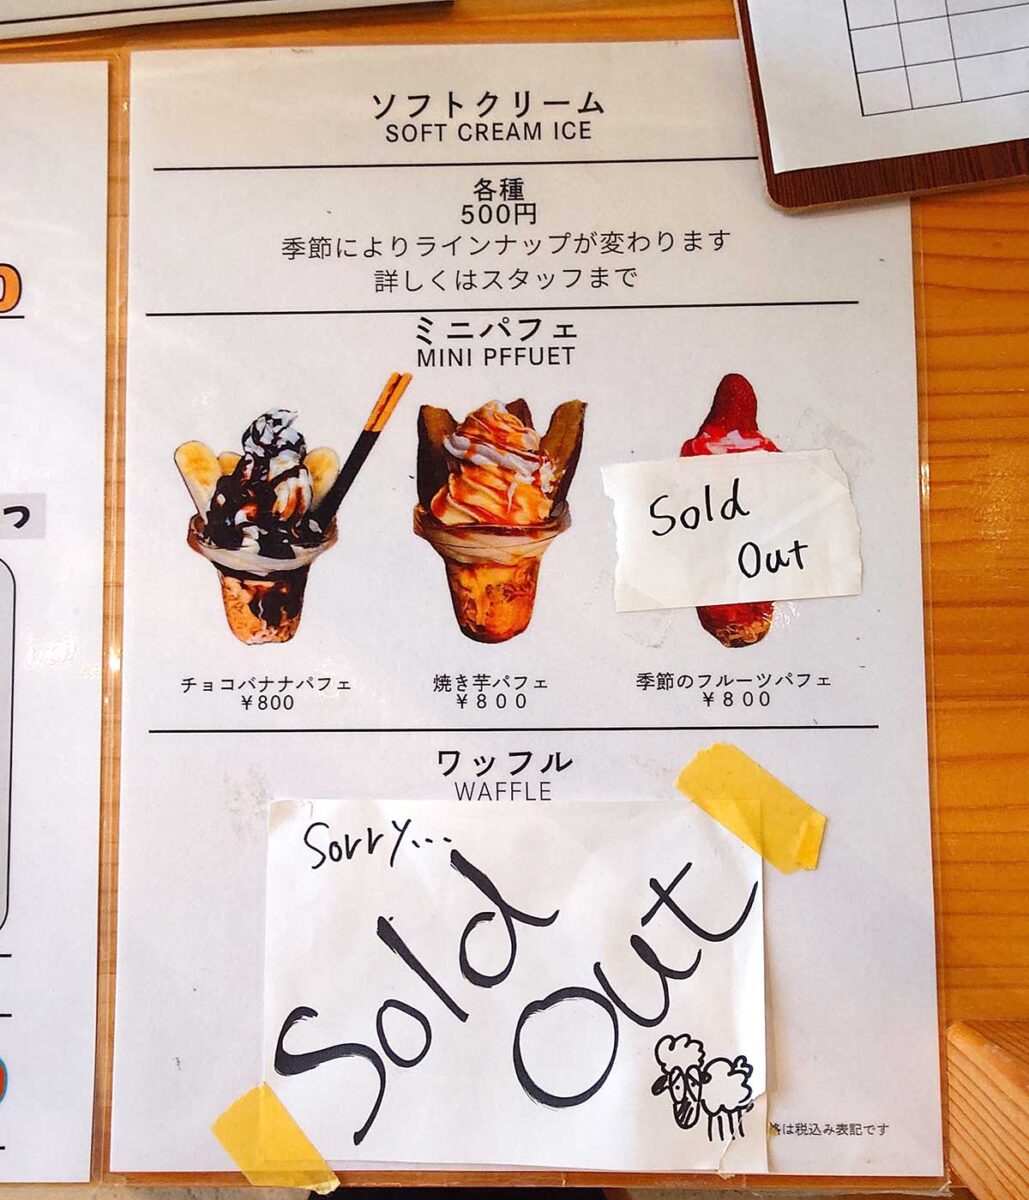 ソフトクリーム
SOFT CREAM ICE
各種
500円
季節によりラインナップが変わります
詳しくはスタッフまで
ミニパフェ
MINI PFFUET
Sold
Out
チョコバナナパフェ
¥800
焼き芋パフェ
¥800
季節のフルーツパフェ
¥800
ワッフル
WAFFLE
Sorry...
Sold
Out
は税込み表記です
0
っ